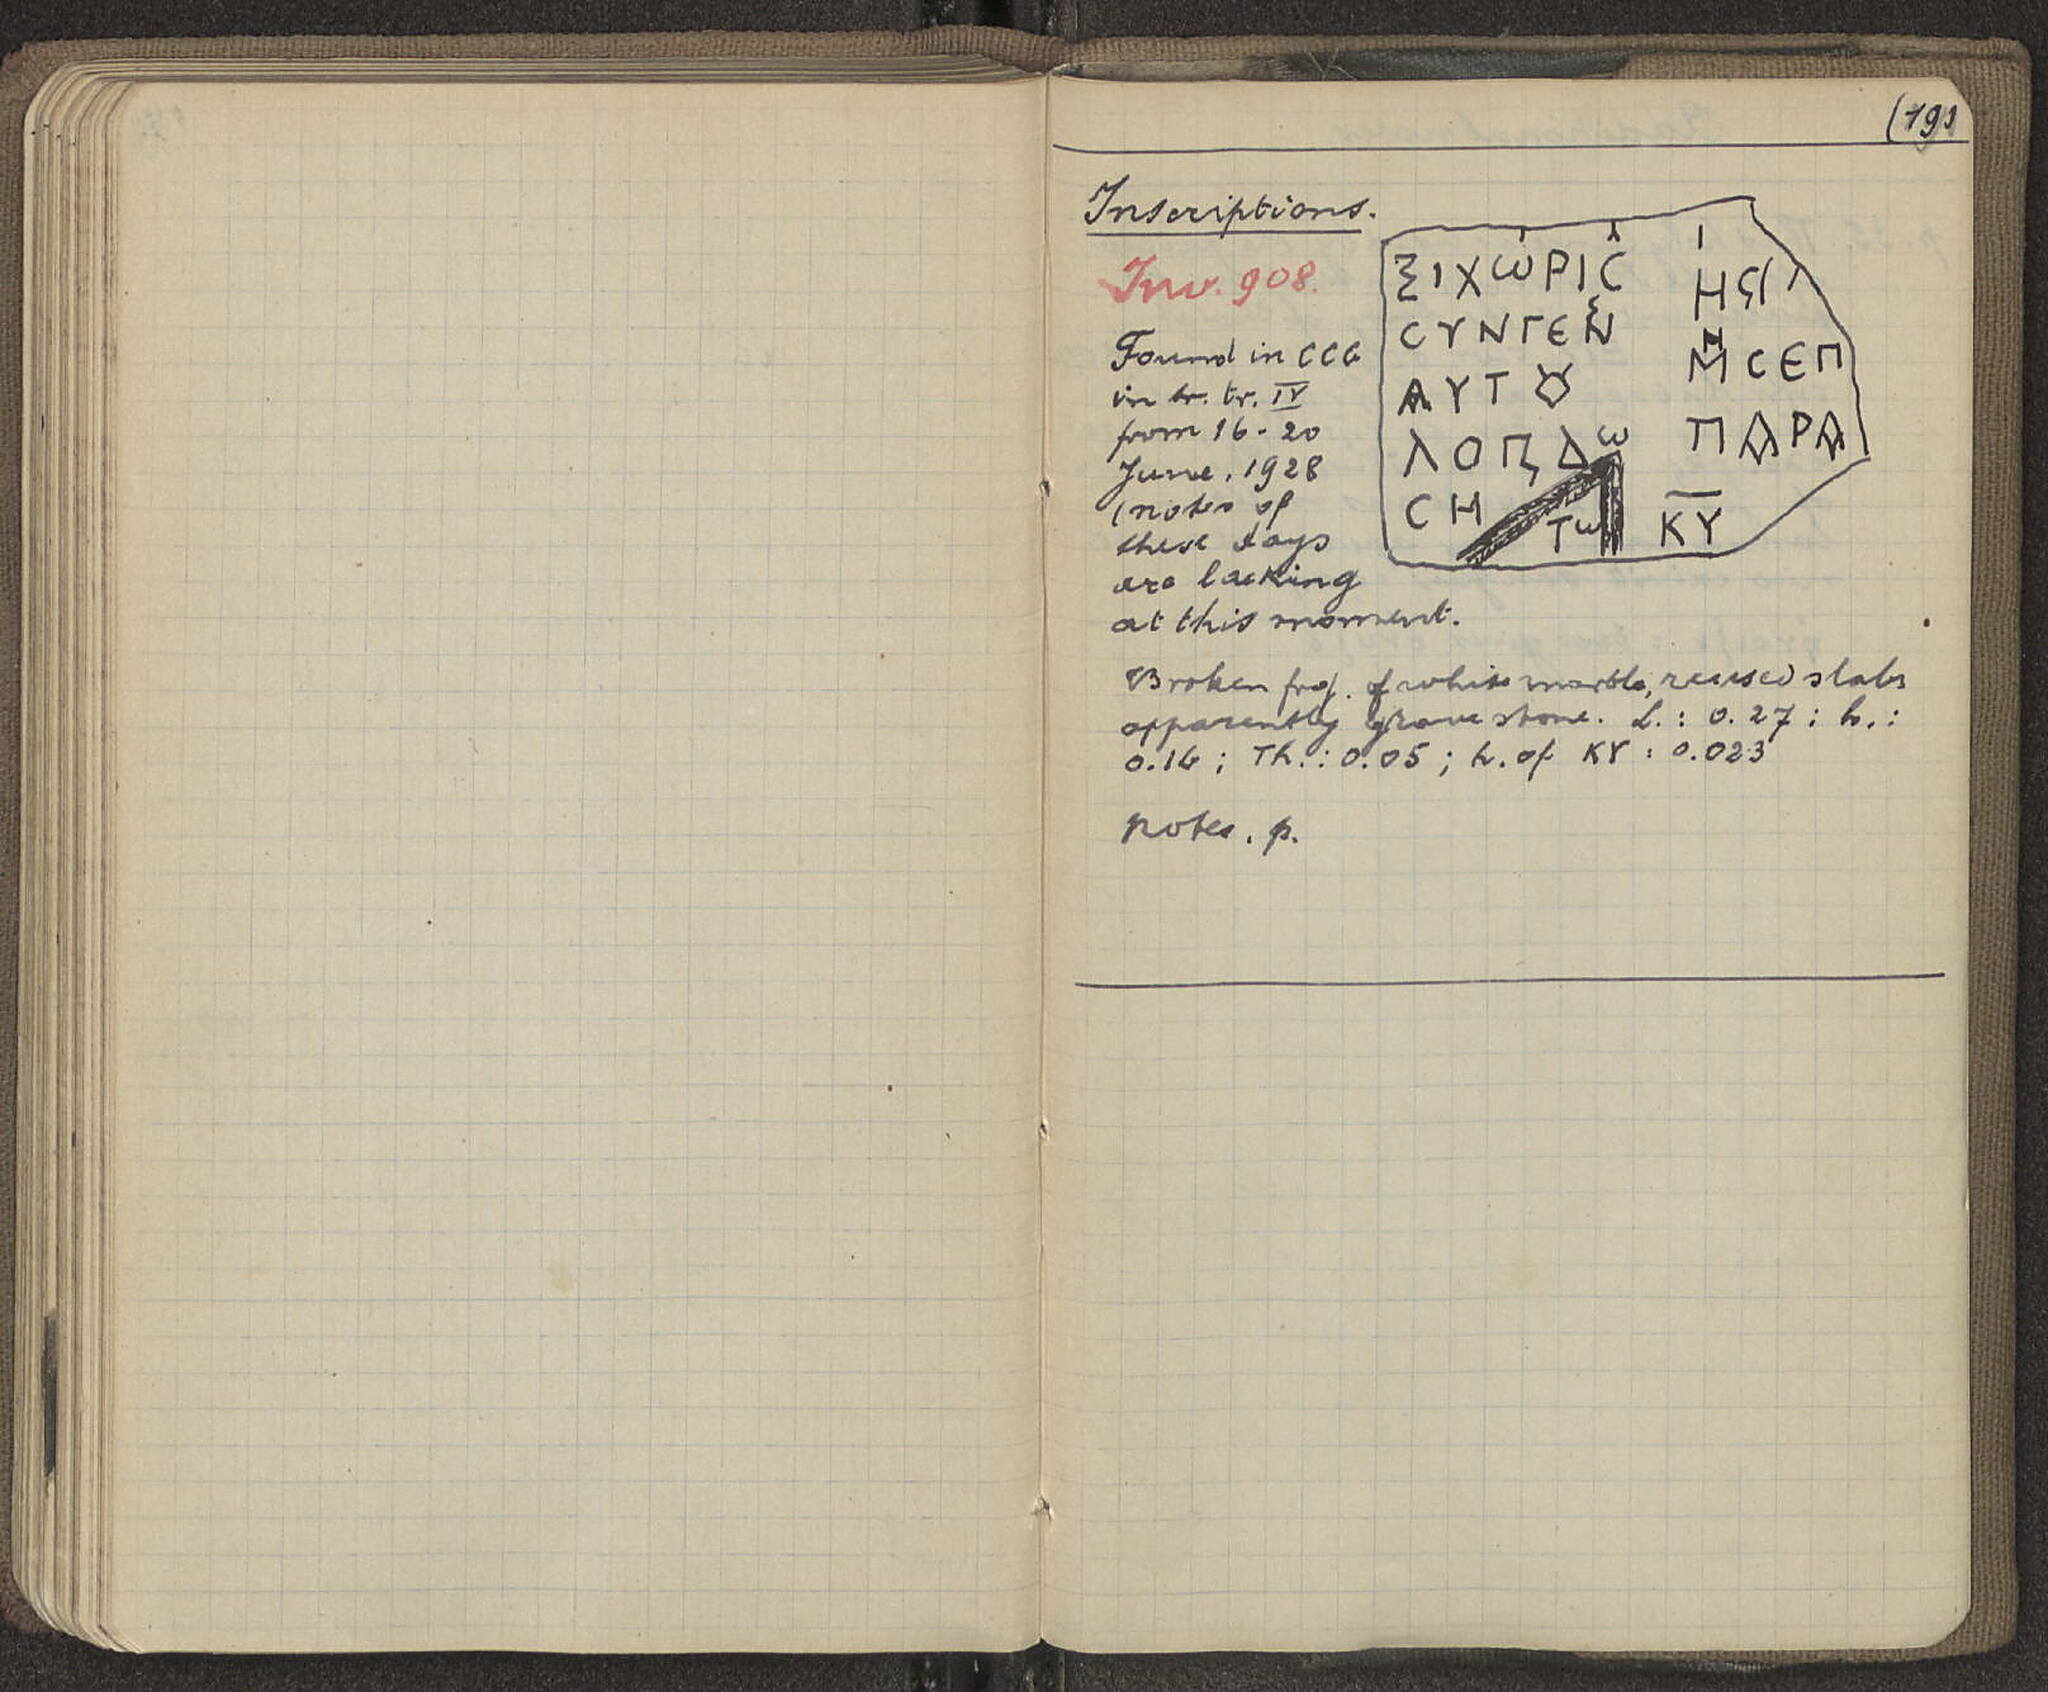 (191
Inscriptions.
Inv. 908.
Found in CCG
in tr. tr. IV
from 16-20
June, 1928
(notes of
these days
are lacking
at this moment.
ΞΙΧΩΡΙϹ ΗϹ
ϹΥΝΓΕΝ ΜϹΕΠ
ΑΥΤȢ ΠΑΡΑ
ΛΟΠΔω
ϹΗ Τω ΚΥ
Broken frag. of white marble, reused slabs
apparently grave stone. L.: 0.27; b.:
0.16; Th.: 0.05; h. of KY: 0.023
Notes. p.